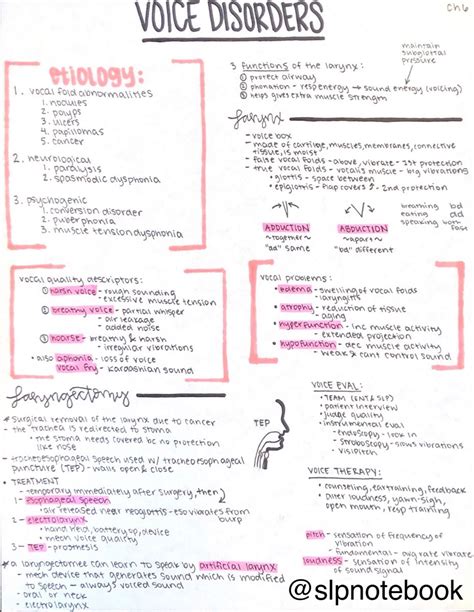 VOICE DISORDERS
Ch 6
etiology:
1. vocal fold abnormalities
1. nodules
2. polyps
3. ulcers
4. papillomas
5. cancer
2. neurological
1. paralysis
2. spasmodic dysphonia
3. psychogenic
1. conversion disorder
2. puberphonia
3. muscle tension dysphonia
maintain
subglottal
pressure
3 functions of the larynx:
1) protect airway
2) phonation - resp energy → sound energy (voicing)
3) helps gives extra muscle strength
larynx
- voice box
- made of cartilage, muscles, membranes, connective
tissue, is moist
- false vocal folds - above, vibrate - 1st protection
- true vocal folds - vocalis muscle - big vibrations
glottis - space between
epiglottis - flap covers - 2nd protection
ADDUCTION
~together~
"add" same
ABDUCTION
~apart~
"bd" different
breathing bd
eating dd
speaking both
fast
vocal quality descriptors:
1) harsh voice - rough sounding
- excessive muscle tension
2) breathy voice - partial whisper
- air leakage
- added noise
3) hoarse - breathy & harsh
- irregular vibrations
also aphonia - loss of voice
vocal fry - kardashian sound
vocal problems:
• edema - swelling of vocal folds
- laryngitis
• atrophy - reduction of tissue
- aging
• hyperfunction - inc muscle activity
- extended projection
• hypofunction - dec muscle activity
- weak & cant control sound
laryngectomy
* surgical removal of the larynx due to cancer
- the trachea is redirected to stoma
• the stoma needs covered bc no protection
like nose
- tracheoesophageal speech used w/ tracheoesophageal
puncture (TEP) - walls open & close
• TREATMENT
- temporary immediately after surgery, then
1- esophageal speech
• air released near neoglottis - eso vibrates from
burp
2- electrolarynx
• hand held, battery op, device
• mech voice quality
3- TEP - prosthesis
* a laryngectomee can learn to speak by artificial larynx
- mech device that generates sound which is modified
to speech - always voiced sound
- oral or nasal
- electrolarynx
TEP
VOICE EVAL:
• TEAM (ENT & SLP)
• patient interview
• judge quality
• instrumental eval
- endoscopy - look in
- stroboscopy - slows vibrations
- visipitch
VOICE THERAPY:
• counseling, ear training, feedback
• alter loudness, yawn-sigh,
open mouth, resp training
pitch - sensation of frequency of
vibration
- fundamental - avg rate vibrate
loudness - sensation of intensity
of sound
@slpnotebook